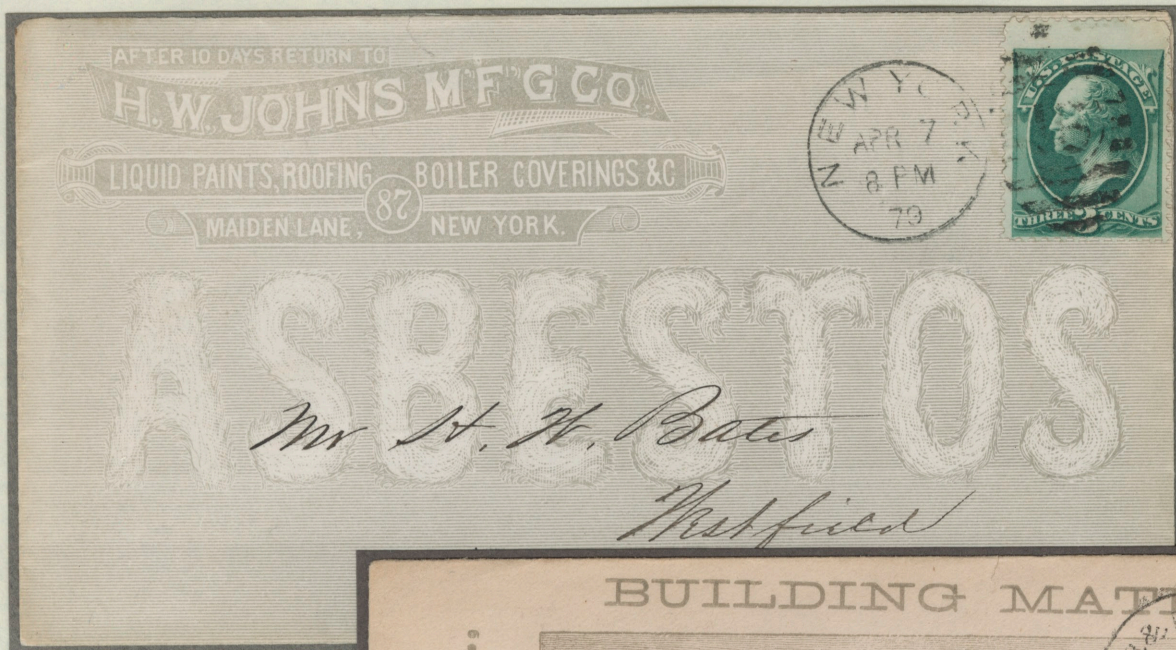 AFTER 10 DAYS RETURN TO
H.W. JOHNS M'F'G CO.
LIQUID PAINTS, ROOFING BOILER COVERINGS &C
87
MAIDEN LANE, NEW YORK.
NEW YORK
APR 7
8 PM
79
U.S. POSTAGE
THREE 3 CENTS
ASBESTOS
Mr H. W. Bates
Westfield
BUILDING